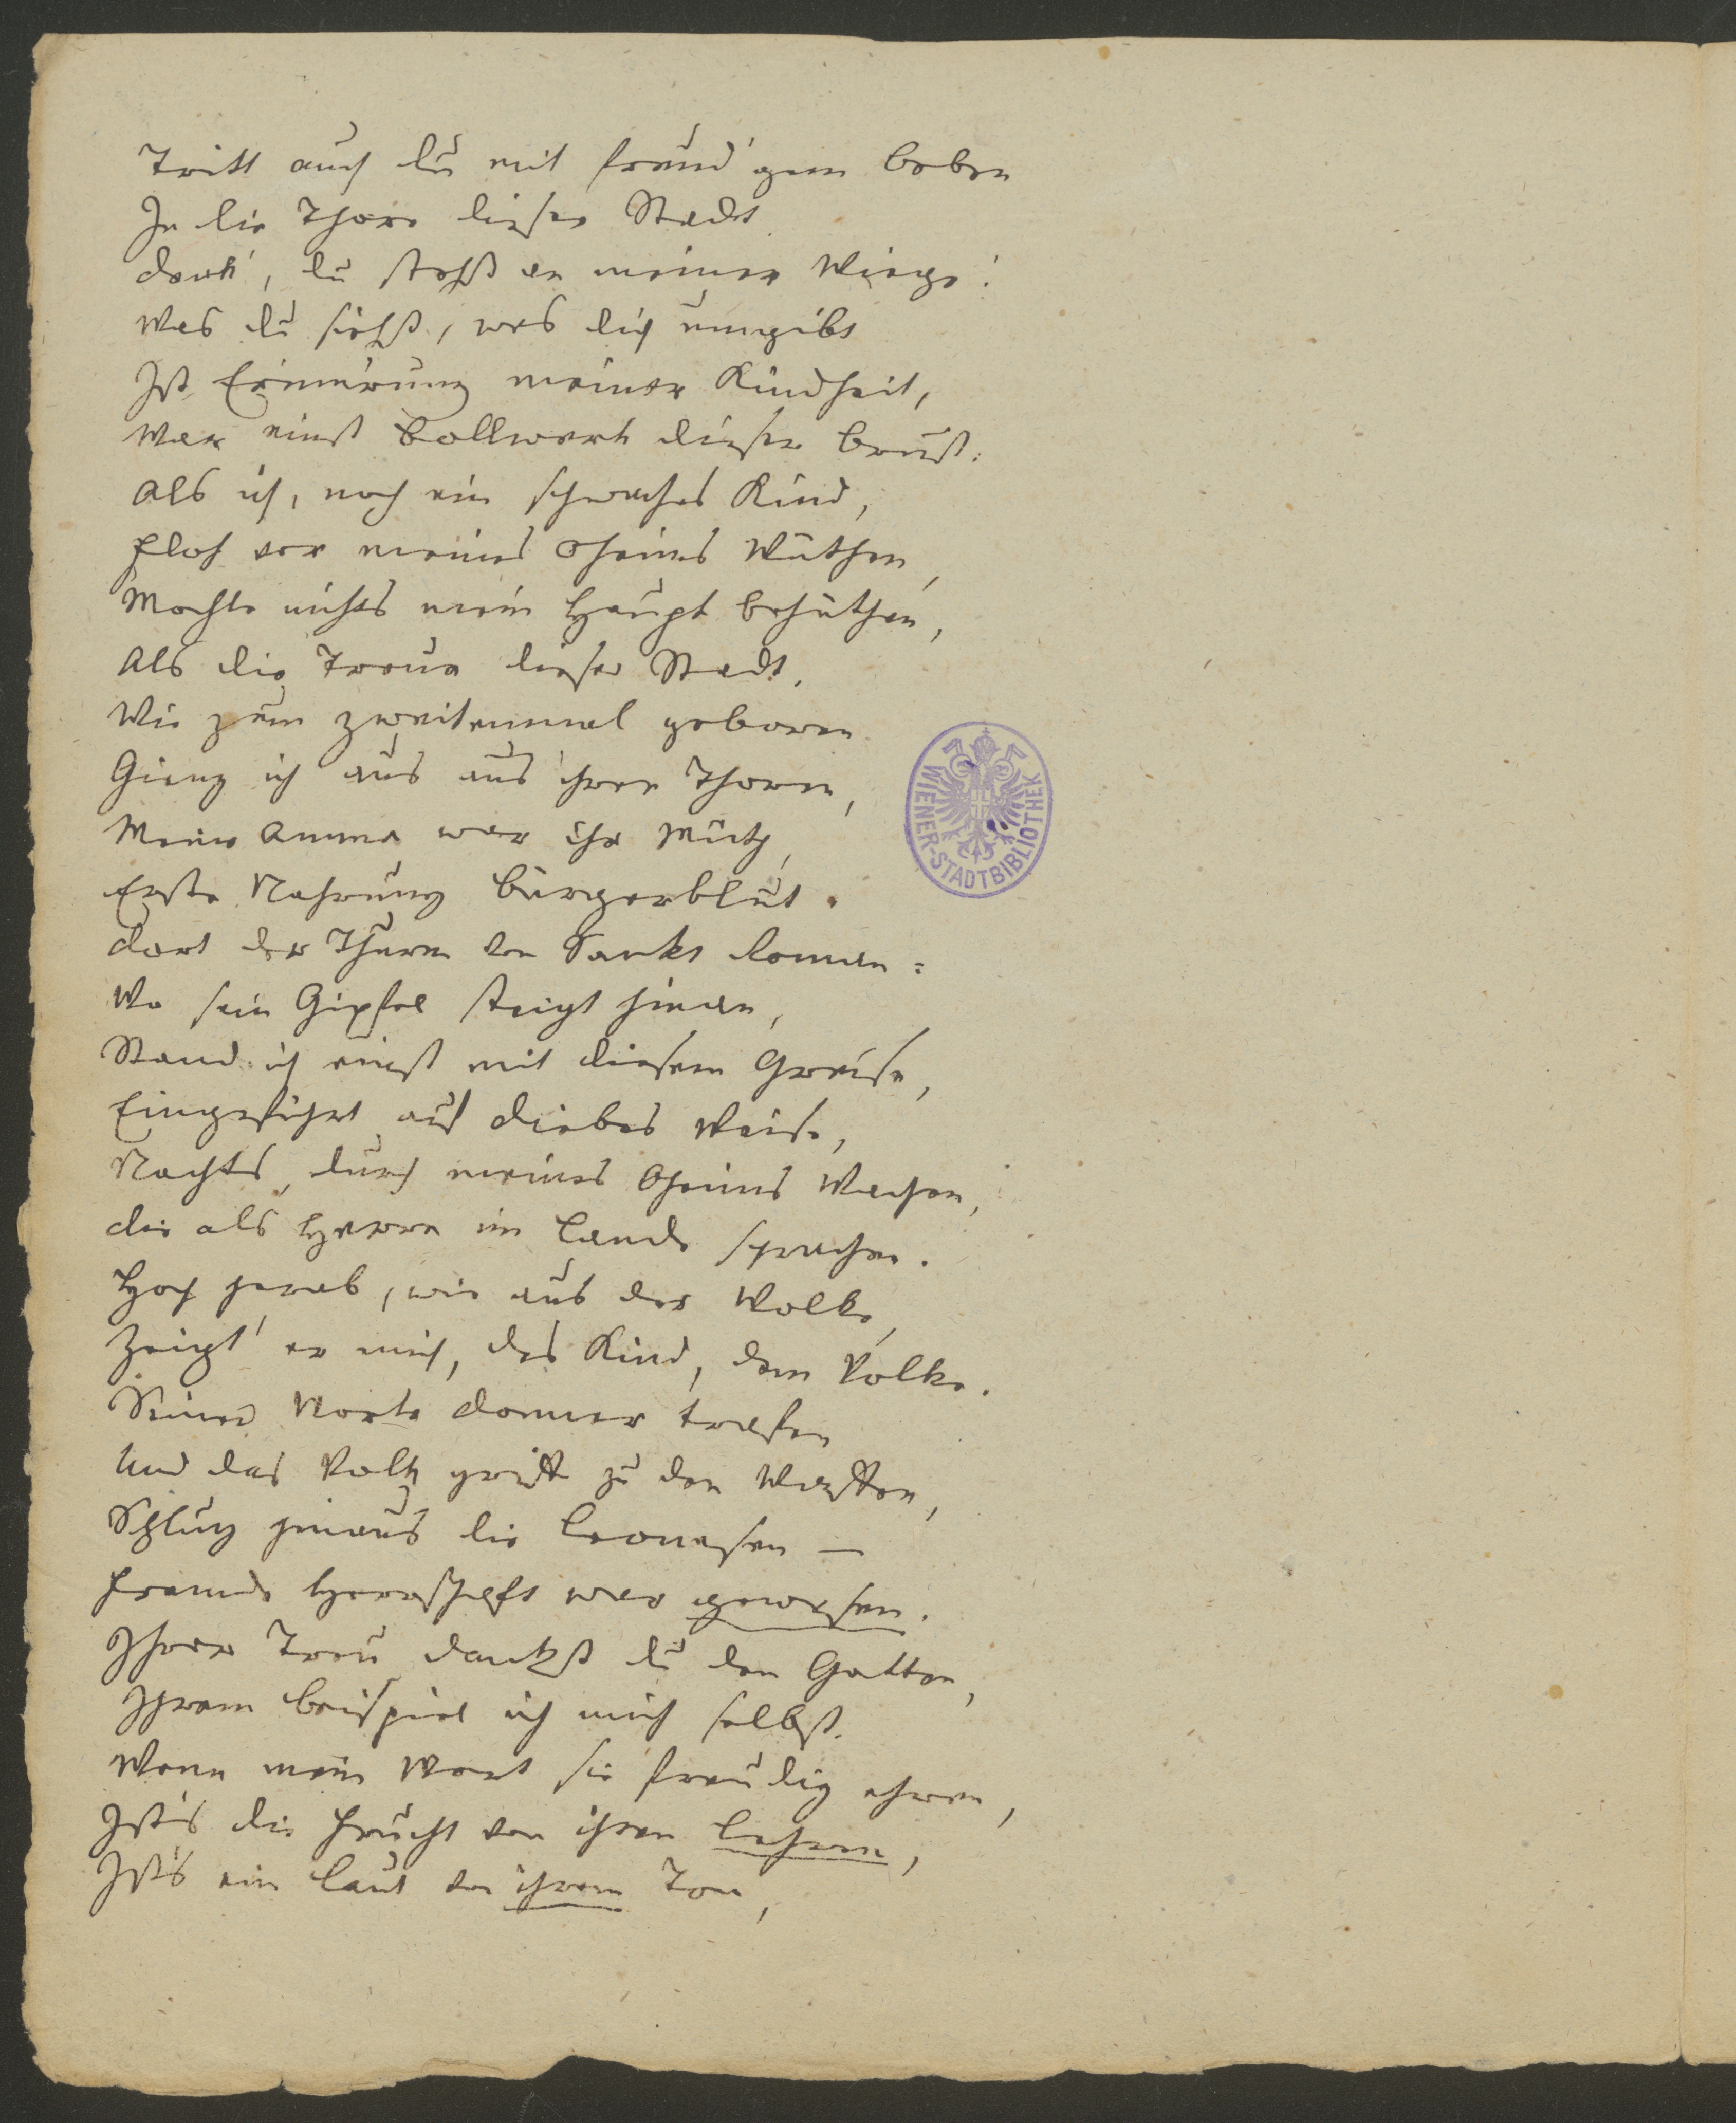 Tritt auch du mit freud'gem Beben
In die Thore dieser Stadt
Denk', du stehst an meiner Wiege!
Was du siehst, was dich umgibt
Ist Erinnrung meiner Kindheit,
War einst Bollwerk dieser Brust.
Als ich, noch ein schwaches Kind,
Floh vor meines Oheims Wüthen,
Mochte nichts mein Haupt behüthen,
Als die Treue dieser Stadt.
Wie zum zweitenmal geboren
Gieng ich aus aus ihren Thoren,
Meine Amme war ihr Muth,
Erste Nahrung Bürgerblut.
Dort der Thurm von Sankt Roman:
Wo sein Gipfel steigt hinan,
Stand ich einst mit diesem Greise,
Eingeführt auf Diebes Weise,
Nachts, durch meines Oheims Wachen,
Die als Herrn im Lande sprachen.
Hoch herab, wie aus der Wolke,
Zeigt' er mich, das Kind, dem Volke.
Seiner Worte Donner trafen
Und das Volk greift zu den Waffen,
Schlug hinaus die Leonesen —
Fremde Herrschaft war gewesen.
Ihrer Treu dankst du den Gatten,
Ihrem Beispiel ich mich selbst.
Wenn mein Wort sie freudig ehren,
Ist's die Frucht von ihren Lehren,
Ist's ein Laut von ihrem Ton,
WIENER-STADTBIBLIOTHEK